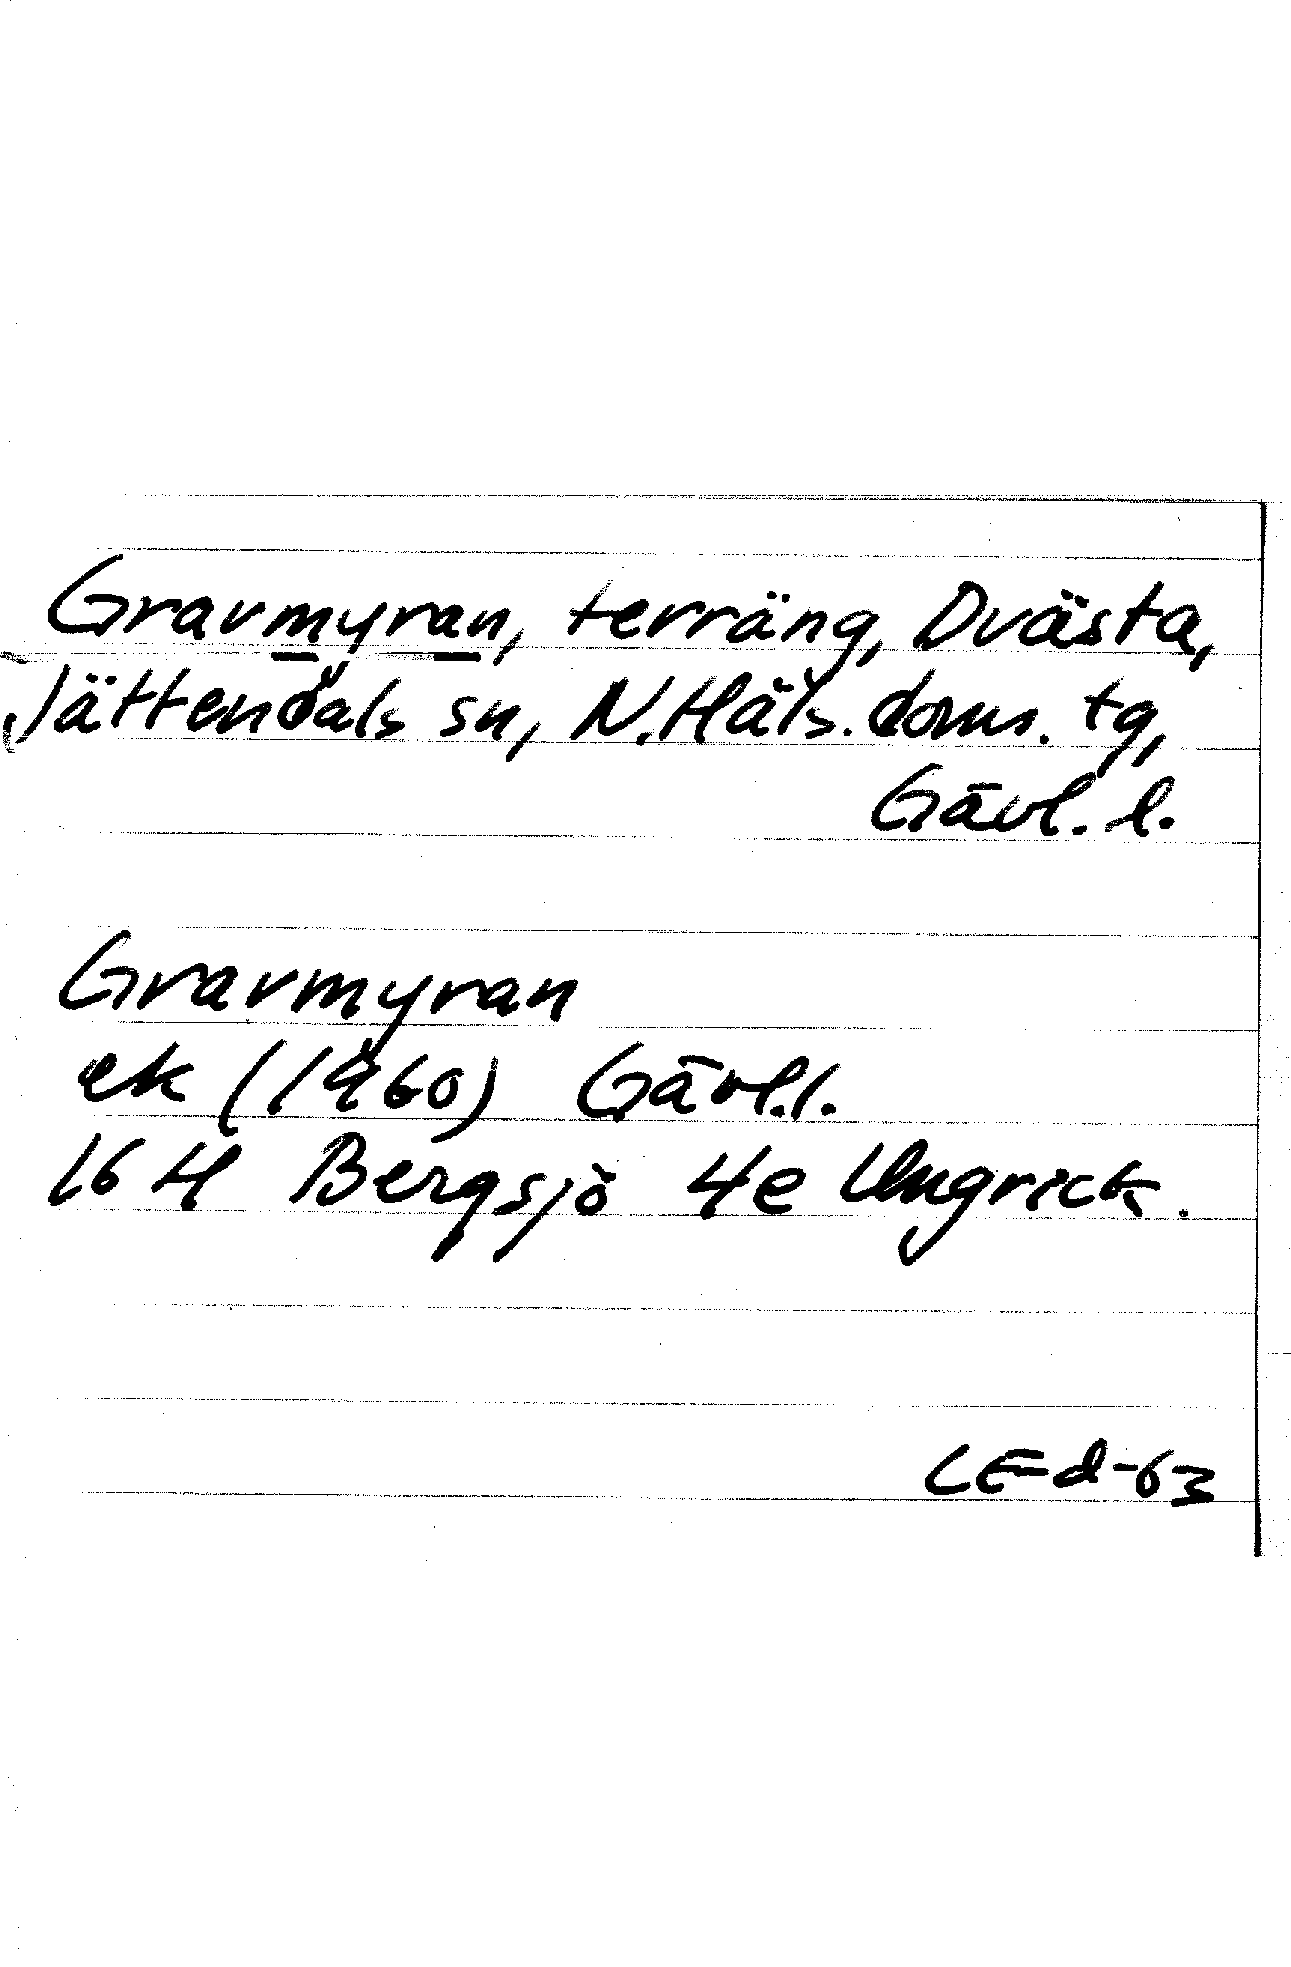 Gravmyran, terräng, Dvästa,
Jättendals sn, N. Häls. doms. tg,
Gävl. l.
Gravmyran
ek (1960) Gävl. l.
16 H Bergsjö 4e Ungrick.
CE-d-63